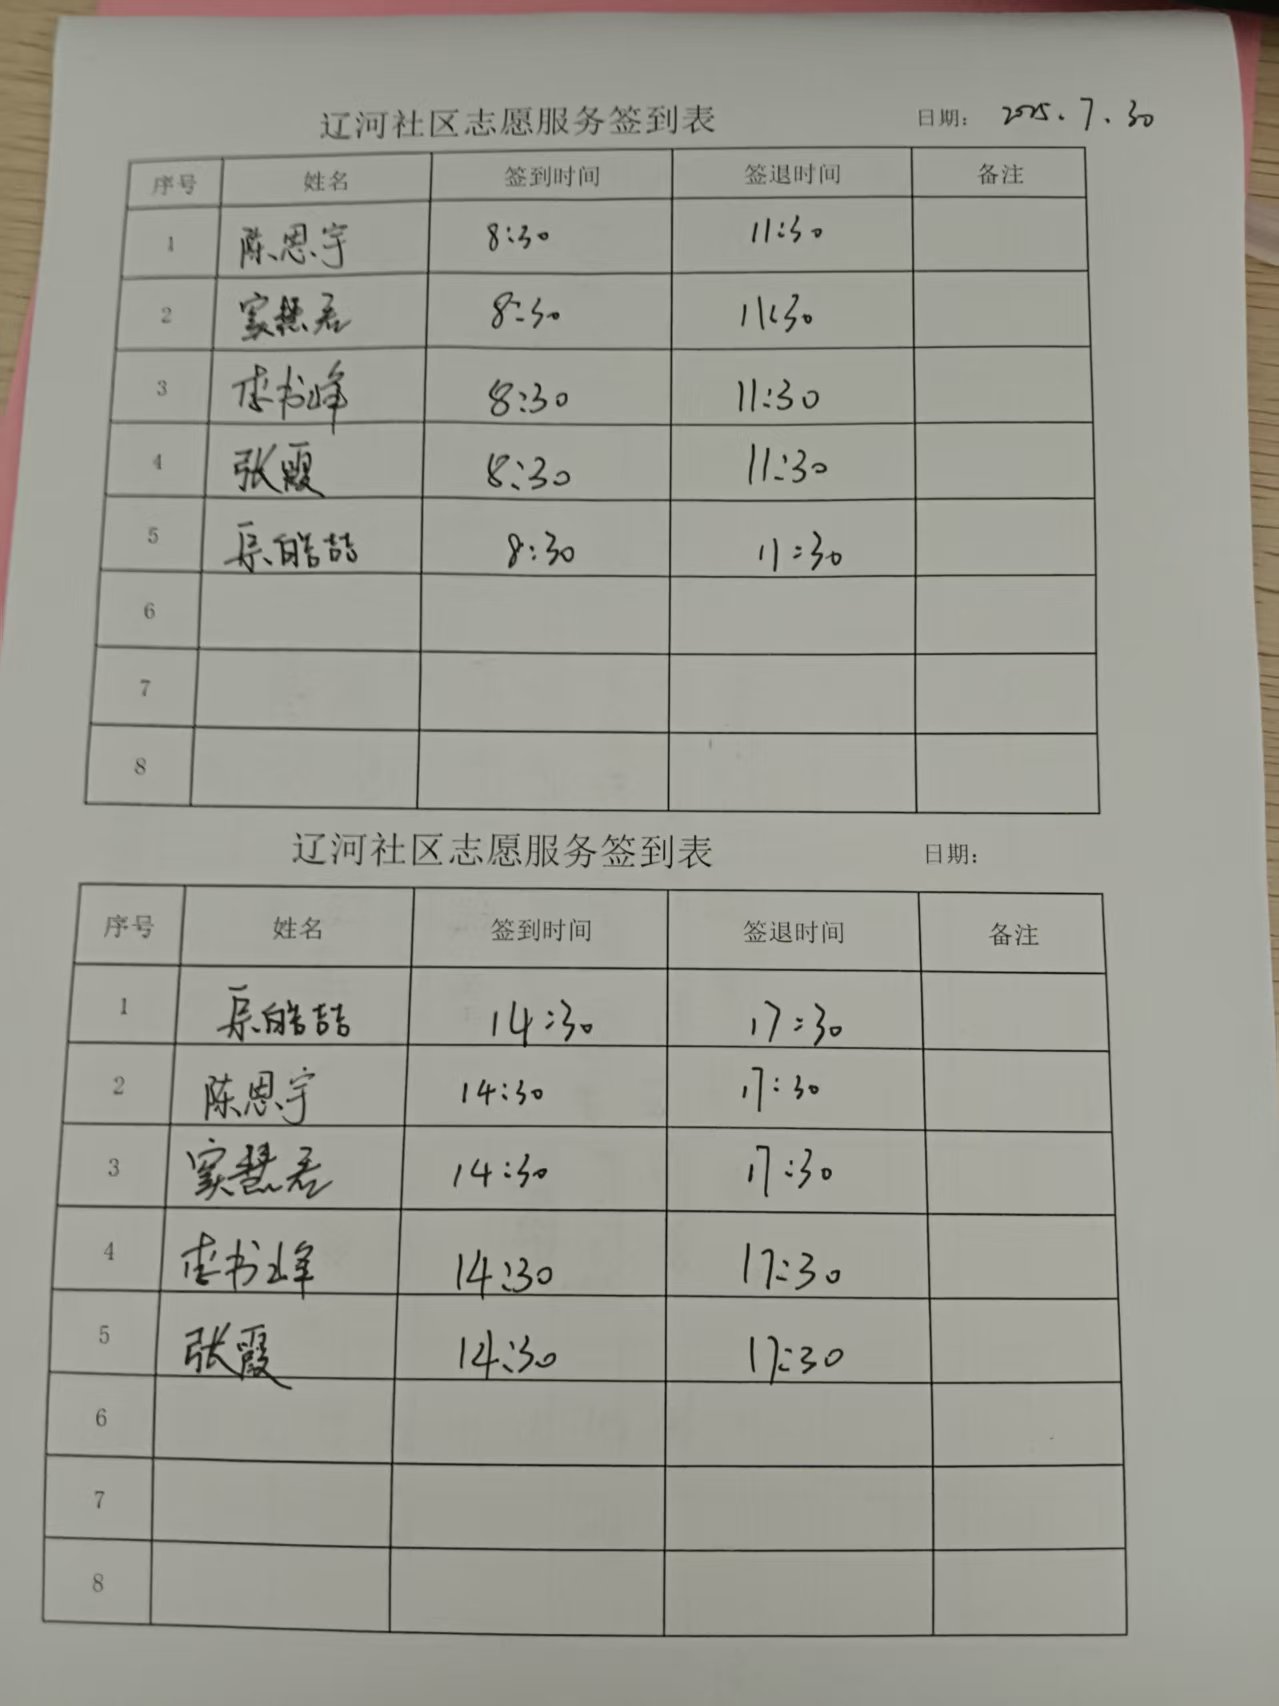 辽河社区志愿服务签到表 日期: 2025.7.30
序号 姓名 签到时间 签退时间 备注
1 陈恩宇 8:30 11:30
2 窦慧君 8:30 11:30
3 李书峰 8:30 11:30
4 张霞 8:30 11:30
5 渠皓喆 8:30 11:30
6
7
8
辽河社区志愿服务签到表 日期:
序号 姓名 签到时间 签退时间 备注
1 渠皓喆 14:30 17:30
2 陈恩宇 14:30 17:30
3 窦慧君 14:30 17:30
4 李书峰 14:30 17:30
5 张霞 14:30 17:30
6
7
8